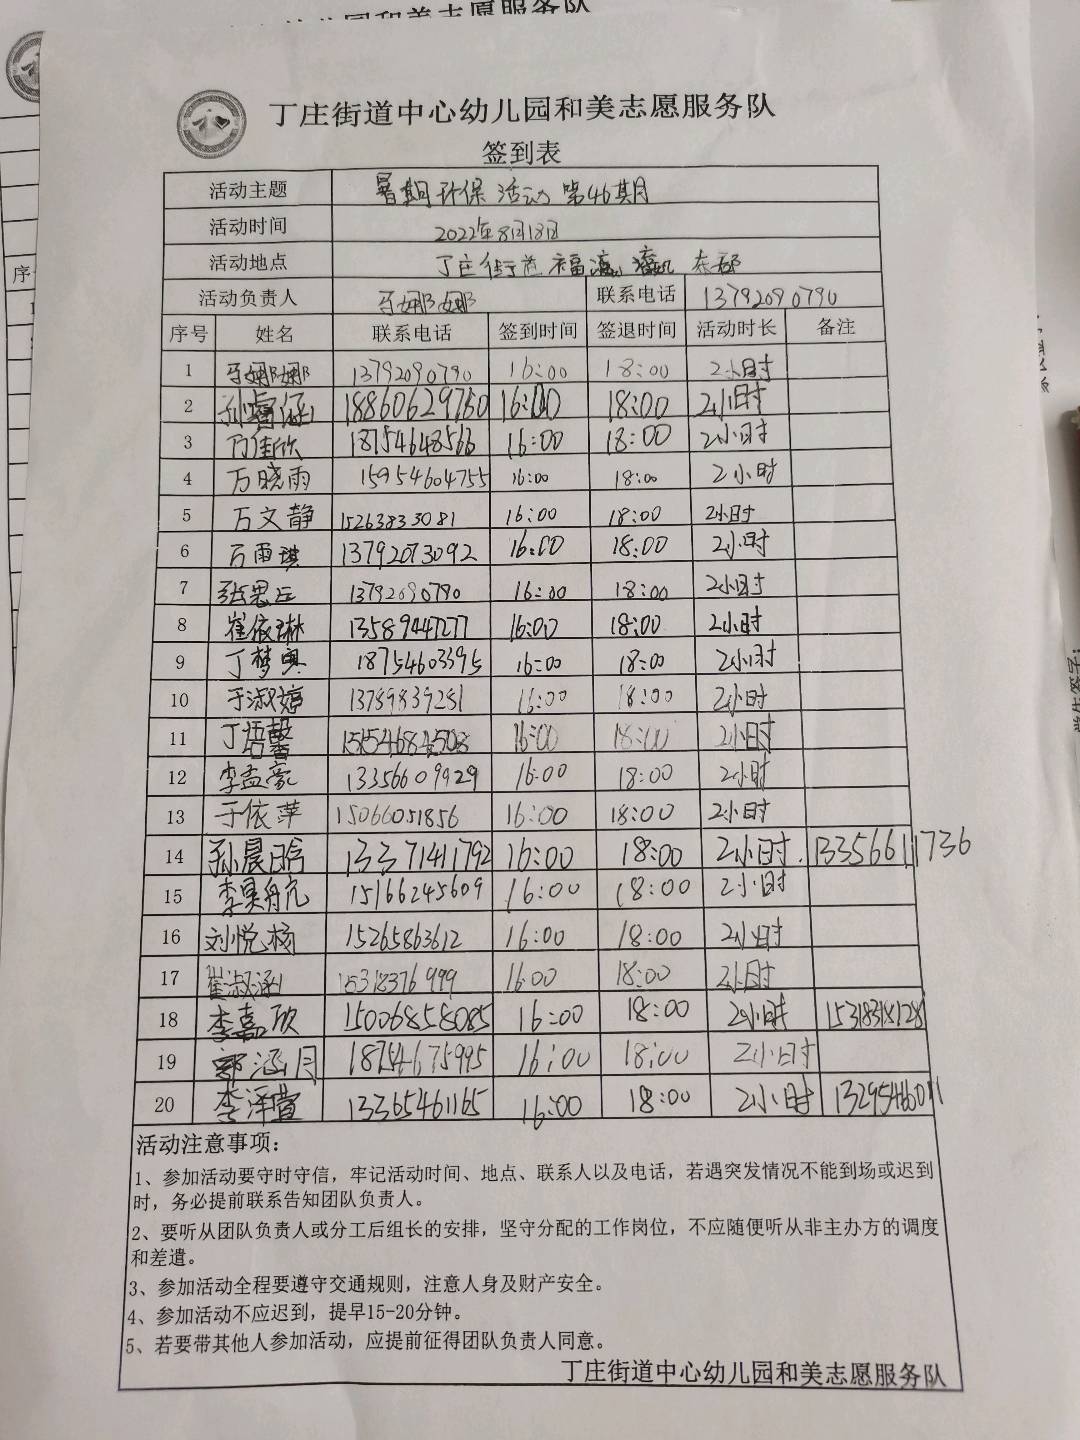 丁庄街道中心幼儿园和美志愿服务队
签到表
活动主题 暑期环保活动 第46期
活动时间 2022年8月18日
活动地点 丁庄街道福 东部
活动负责人 马娜娜 联系电话 13792090790
序号 姓名 联系电话 签到时间 签退时间 活动时长 备注
1 马娜娜 13792090790 16:00 18:00 2小时
2 孙睿 18860629750 16:00 18:00 2小时
3 万佳欣 18754648566 16:00 18:00 2小时
4 万晓雨 15954604755 16:00 18:00 2小时
5 万文静 15263833081 16:00 18:00 2小时
6 万雨琪 13792073092 16:00 18:00 2小时
7 张思 13792090790 16:00 18:00 2小时
8 崔依琳 13589447277 16:00 18:00 2小时
9 丁梦 18754603395 16:00 18:00 2小时
10 于淑婷 13789839281 16:00 18:00 2小时
11 丁培馨 16:00 18:00 2小时
12 李孟豪 13356609929 16:00 18:00 2小时
13 于依萍 15066051856 16:00 18:00 2小时
14 孙晨晗 13371411792 16:00 18:00 2小时 13356611736
15 李昊航 15166245609 16:00 18:00 2小时
16 刘悦杨 15265863612 16:00 18:00 2小时
17 崔淑涵 15318376999 16:00 18:00 2小时
18 李嘉欣 15006858085 16:00 18:00 2小时
19 郭涵月 18754675995 16:00 18:00 2小时
20 李泽萱 13365461165 16:00 18:00 2小时
活动注意事项：
1、参加活动要守时守信，牢记活动时间、地点、联系人以及电话，若遇突发情况不能到场或迟到
时，务必提前联系告知团队负责人。
2、要听从团队负责人或分工后组长的安排，坚守分配的工作岗位，不应随便听从非主办方的调度
和差遣。
3、参加活动全程要遵守交通规则，注意人身及财产安全。
4、参加活动不应迟到，提早15-20分钟。
5、若要带其他人参加活动，应提前征得团队负责人同意。
丁庄街道中心幼儿园和美志愿服务队